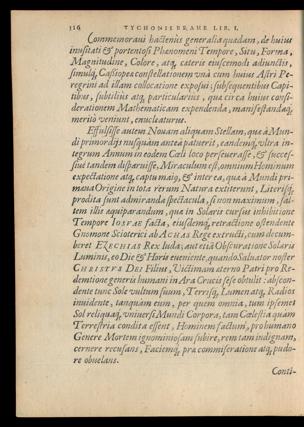 316 TYCHONIS BRAHE LIB. I.
Commemoravi hactenis generalia quædam, de huius
inusitati & portentosi Phenomeni Tempore, Situ, Forma,
Magnitudine, Colore, atq, cæteris eiuscemodi adiunctis,
simulq, Casiopea constellationem unà cum huius Astri Pe-
regrini ad illam collocatione exposui; subsequentibus Capi-
tibus, subtiliùs atq, particulariùs, quæ circa huius consi-
derationem Mathematicam expendenda, manifestandaq,
meritò veniunt, enucleaturus.
Effulsisse autem Novam aliquam Stellam, quæ à Mun-
di primordijs nusquam anteà patuerit, eandemq, ultra in-
tegrum Annum in eodem Cæli loco perseverasse, & succes-
sivè tandem disparuisse, Miraculum est, omnium Hominum
expectatione atq, captu maio, & inter ea, quæ à Mundi pri-
mæua Origine in tota rerum Natura extiterunt, Literisq,
prodita sunt admiranda spectacula, si non maximum, sal-
tem illis æquiparandum, quæ in Solaris cursus inhibitione
Tempore IOSUÆ facta, eiusdemq, retractione ostendente
Gnomone Scioterici ab ACHAS Rege extructi, cum decum-
beret EZECHIAS Rex Iuda; aut etiā Obscuratione Solaris
Luminis, eo Die & Horis eveniente, quando Salvator noster
CHRISTVS DEI Filius, Victimam æterno Patri pro Re-
demtione generis humani in Ara Crucis sese obtulit: abscon-
dente tunc Sole vultum suum, Terrisq, Lumen atq, Radios
invidente, tanquàm eum, per quem omnia, tum ipsemet
Sol reliquaq, universi Mundi Corpora, tam Cælestia quàm
Terrestria condita essent, Hominem factum, pro humano
Genere Mortem ignominiosam subire, rem tam indignam,
cernere recusans, Faciemq, præ commiseratione atq, pudo-
re obvelans.
Conti-